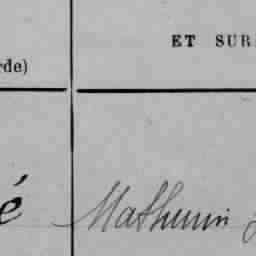 ET SUR
rde)
é Mathurin